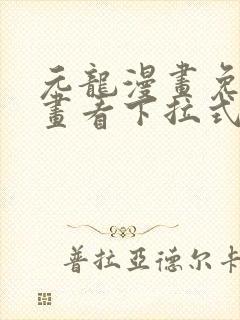 元龍漫畫免
畫者下拉式
普拉亞德尔卡